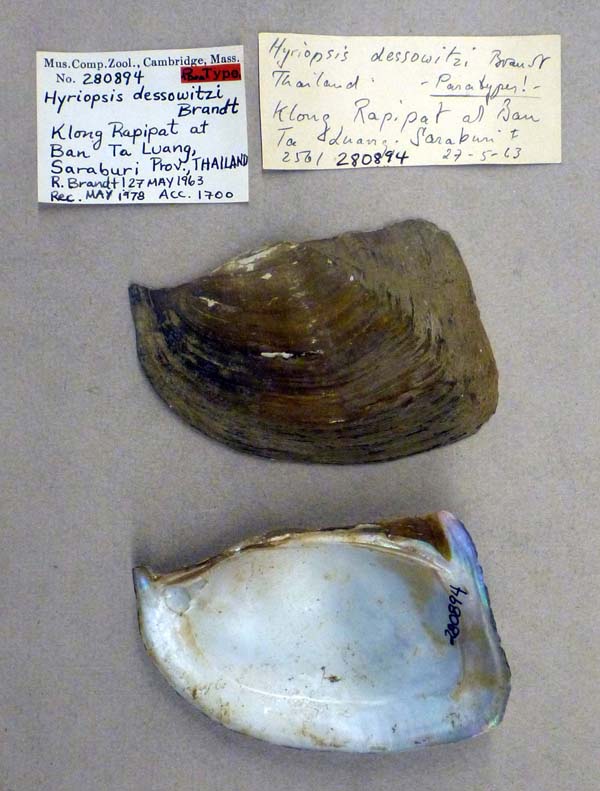 Mus.Comp.Zool., Cambridge, Mass.
No. 280894 ParaType
Hyriopsis dessowitzi
Brandt
Klong Rapipat at
Ban Ta Luang,
Saraburi Prov., THAILAND
R. Brandt! 27 MAY 1963
Rec. MAY 1978 Acc. 1700
Hyriopsis dessowitzi Brandt
Thailand. - Paratypes! -
Klong Rapipat at Ban
Ta Luang. Saraburi
2561 280894 27-5-63
280894